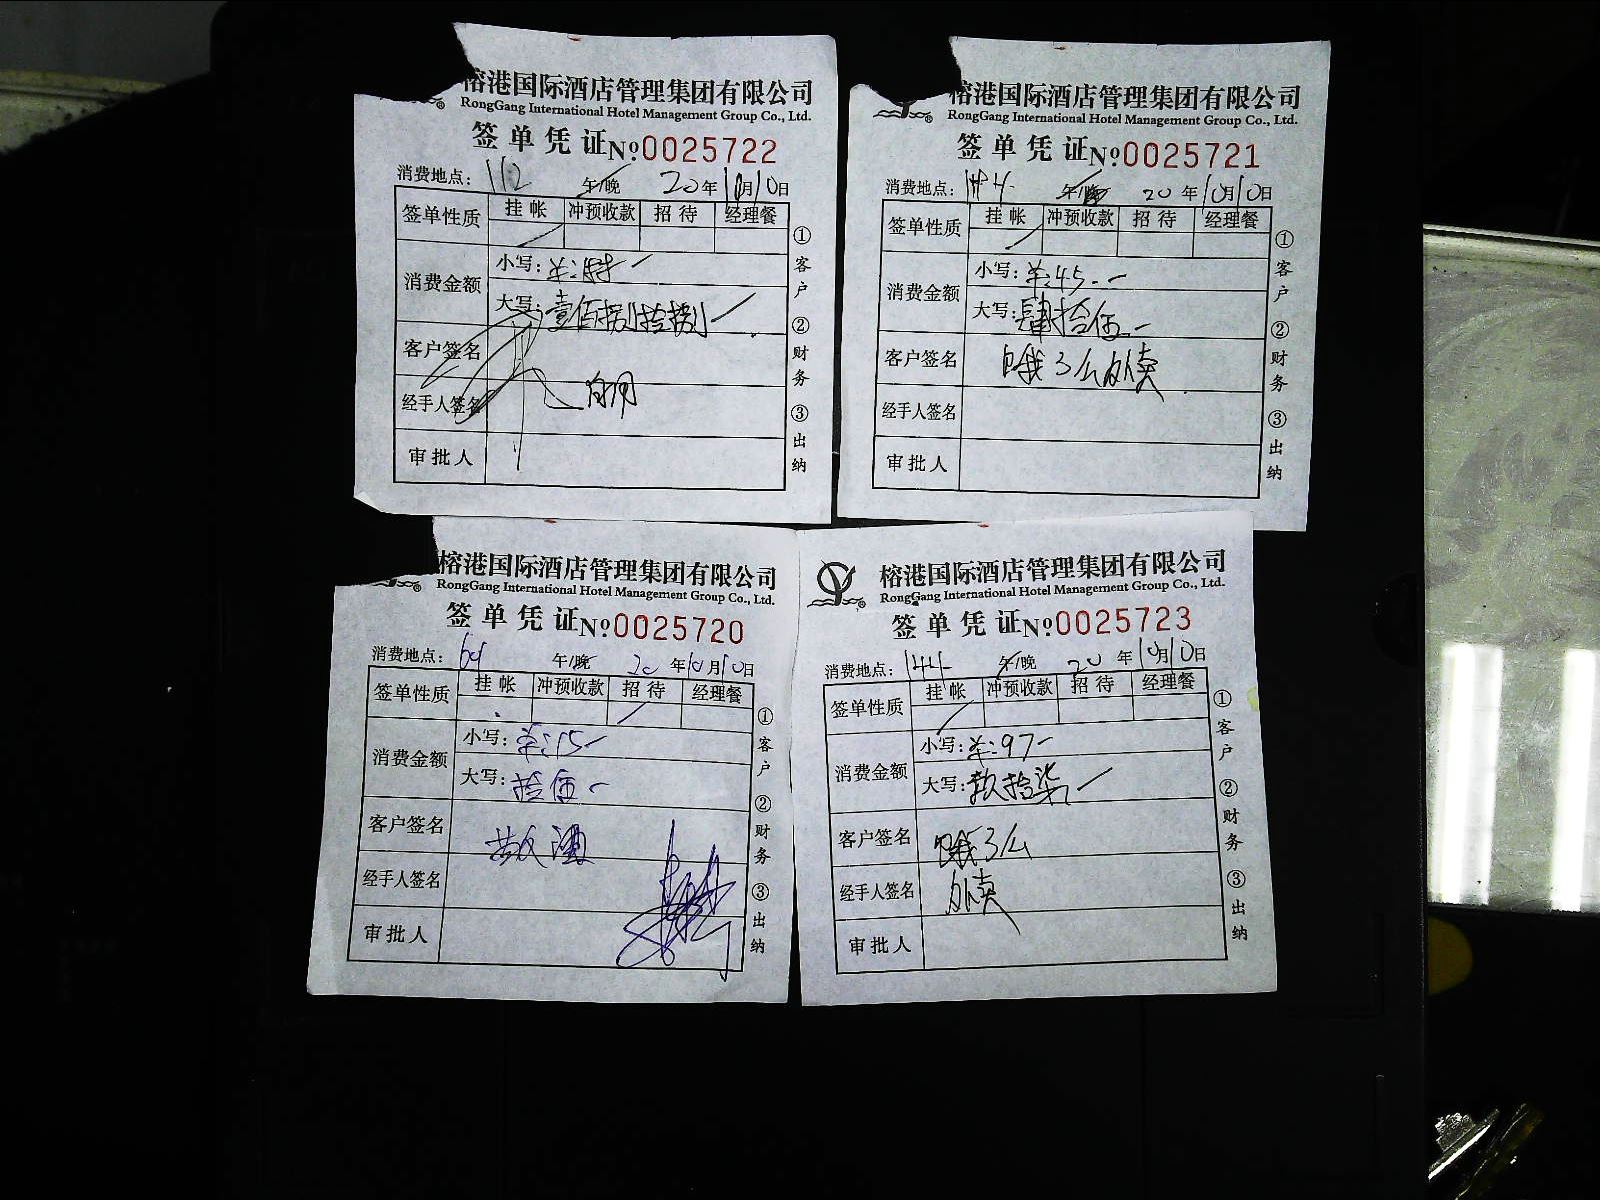 榕港国际酒店管理集团有限公司
RongGang International Hotel Management Group Co., Ltd.
签单凭证 №0025722
消费地点: 112 午/晚 20年10月10日
签单性质 挂帐 冲预收款 招待 经理餐
消费金额 小写:
大写: 壹佰捌拾捌
客户签名
经手人签名
审批人
①客户 ②财务 ③出纳
榕港国际酒店管理集团有限公司
RongGang International Hotel Management Group Co., Ltd.
签单凭证 №0025721
消费地点: 午/晚 20年10月10日
签单性质 挂帐 冲预收款 招待 经理餐
消费金额 小写: 羊:45.-
大写: 肆拾伍.-
客户签名 饿了么外卖
经手人签名
审批人
①客户 ②财务 ③出纳
榕港国际酒店管理集团有限公司
RongGang International Hotel Management Group Co., Ltd.
签单凭证 №0025720
消费地点: 午/晚 20年10月10日
签单性质 挂帐 冲预收款 招待 经理餐
消费金额 小写: 羊:15-
大写: 拾伍-
客户签名 敬酒
经手人签名
审批人
①客户 ②财务 ③出纳
榕港国际酒店管理集团有限公司
RongGang International Hotel Management Group Co., Ltd.
签单凭证 №0025723
消费地点: 144 午/晚 20年10月10日
签单性质 挂帐 冲预收款 招待 经理餐
消费金额 小写: 羊:97-
大写: 玖拾柒
客户签名 饿了么
经手人签名 外卖
审批人
①客户 ②财务 ③出纳